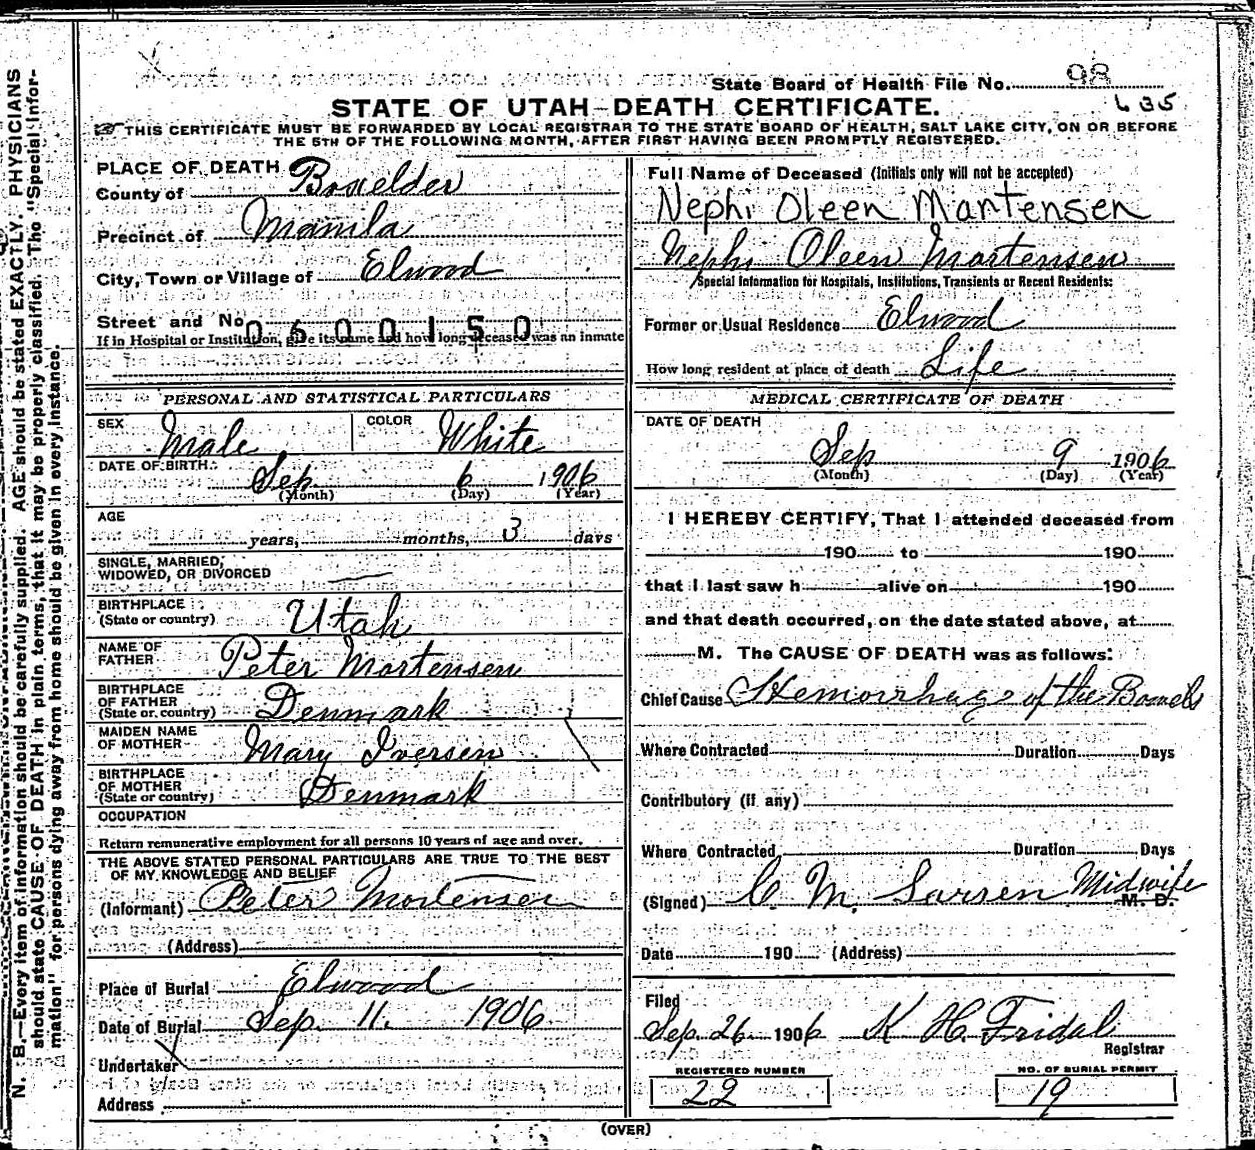 State Board of Health File No. 98
635
STATE OF UTAH—DEATH CERTIFICATE.
THIS CERTIFICATE MUST BE FORWARDED BY LOCAL REGISTRAR TO THE STATE BOARD OF HEALTH, SALT LAKE CITY, ON OR BEFORE
THE 5TH OF THE FOLLOWING MONTH, AFTER FIRST HAVING BEEN PROMPTLY REGISTERED.
N. B.—Every item of information should be carefully supplied. AGE should be stated EXACTLY. PHYSICIANS
should state CAUSE OF DEATH in plain terms, that it may be properly classified. The "Special Infor-
mation" for persons dying away from home should be given in every instance.
PLACE OF DEATH
County of Boxelder
Precinct of Manila
City, Town or Village of Elwood
Street and No.
0600150
If in Hospital or Institution, give its name and how long deceased was an inmate
PERSONAL AND STATISTICAL PARTICULARS
SEX Male COLOR White
DATE OF BIRTH Sep 6 1906
(Month) (Day) (Year)
AGE
years, months, 3 days
SINGLE, MARRIED,
WIDOWED, OR DIVORCED —
BIRTHPLACE
(State or country) Utah
NAME OF
FATHER Peter Mortensen
BIRTHPLACE
OF FATHER
(State or country) Denmark
MAIDEN NAME
OF MOTHER Mary Iversen
BIRTHPLACE
OF MOTHER
(State or country) Denmark
OCCUPATION
Return remunerative employment for all persons 10 years of age and over.
THE ABOVE STATED PERSONAL PARTICULARS ARE TRUE TO THE BEST
OF MY KNOWLEDGE AND BELIEF
(Informant) Peter Mortensen
(Address)
Place of Burial Elwood
Date of Burial Sep. 11. 1906
Undertaker
Address
Full Name of Deceased (Initials only will not be accepted)
Nephi Oleen Mantensen
Nephi Oleen Mortensen
Special Information for Hospitals, Institutions, Transients or Recent Residents:
Former or Usual Residence Elwood
How long resident at place of death Life
MEDICAL CERTIFICATE OF DEATH
DATE OF DEATH
Sep 9 1906
(Month) (Day) (Year)
I HEREBY CERTIFY, That I attended deceased from
190 to 190
that I last saw h alive on 190
and that death occurred, on the date stated above, at
M. The CAUSE OF DEATH was as follows:
Chief Cause Hemorrhage of the Bowels
Where Contracted Duration Days
Contributory (if any)
Where Contracted Duration Days
(Signed) C. M. Larsen Midwife
M. D.
Date 190 (Address)
Filed
Sep. 26 1906 K H. Fridal
Registrar
REGISTERED NUMBER
22
NO. OF BURIAL PERMIT
19
(OVER)